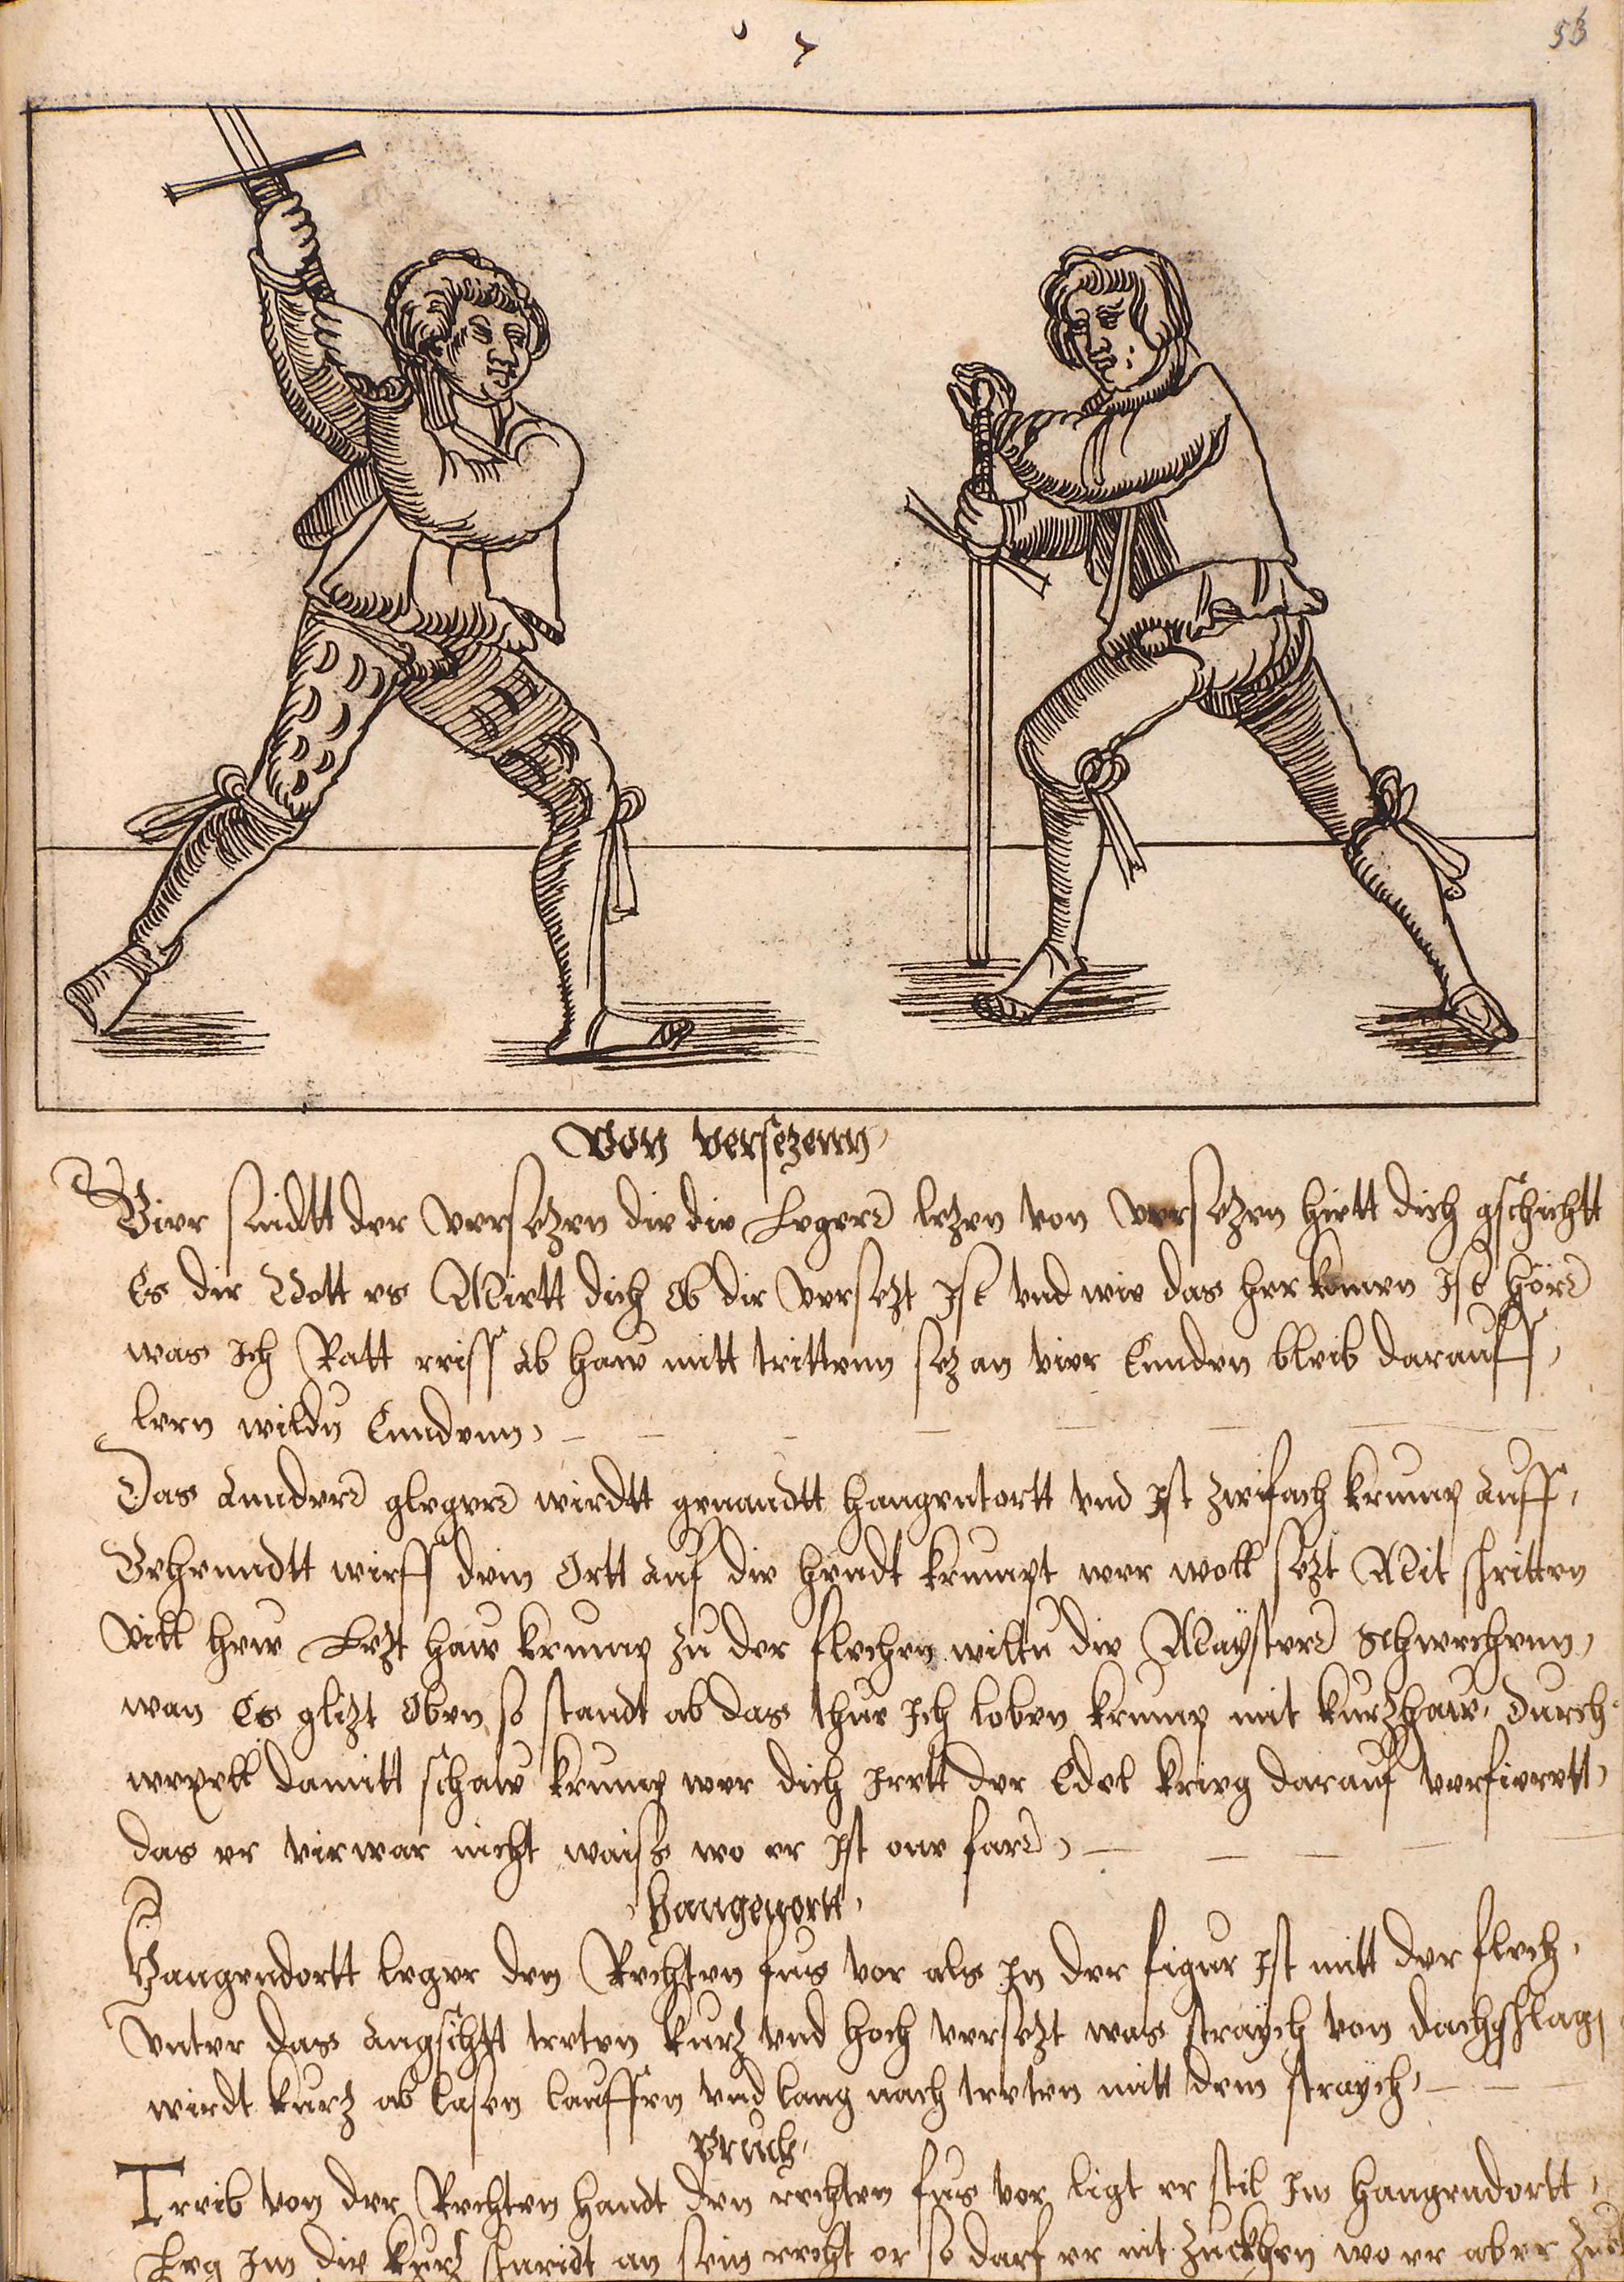 53
Von versezenn,
Vier sindtt der versezen die die Legere lezen von versezen hiett dich gschichtt
Es dir Nott es Miett dich Ob dir versezt Ist vnd wie das her komen Ist höre
was Ich Ratt reiss ab haw mitt trittenn sez an vier Ennden bleib darauff,
lern wildu Enndenn,
Das Anndere glegere wirdtt genandtt hangentortt vnd Ist zwifach krump auff,
Behenndtt wirff dein Ortt auf die hendt krumpt wer woll sezt Mit schritten
vill hew Lezt haw krump zu der flechen wiltu die Maÿstere schwechenn,
wan Es glizt Oben, so standt ab das thue Ich loben krump mit kurzhaw, durch
wexell damitt schaw krump wer dich Irrtt der Edel krieg darauf verfierett,
das er virwar nicht waiss wo er Ist one fare,
Hangenortt,
Hangendortt leger den Rechten fus vor als In der figur Ist mitt der flech,
vnter das angsichtt treten kurz vnd hoch versezt was straÿch von dachschlag
wirdt kurz ab lasen lauffen vnd lang nach treten mitt dem straÿch,
Bruch,
Treib von der Rechten handt den rechten fus vor ligt er stil Im hangendortt,
Leg Im die kurz schneidt an sein recht or so darf er nit zuckhen wo er aber